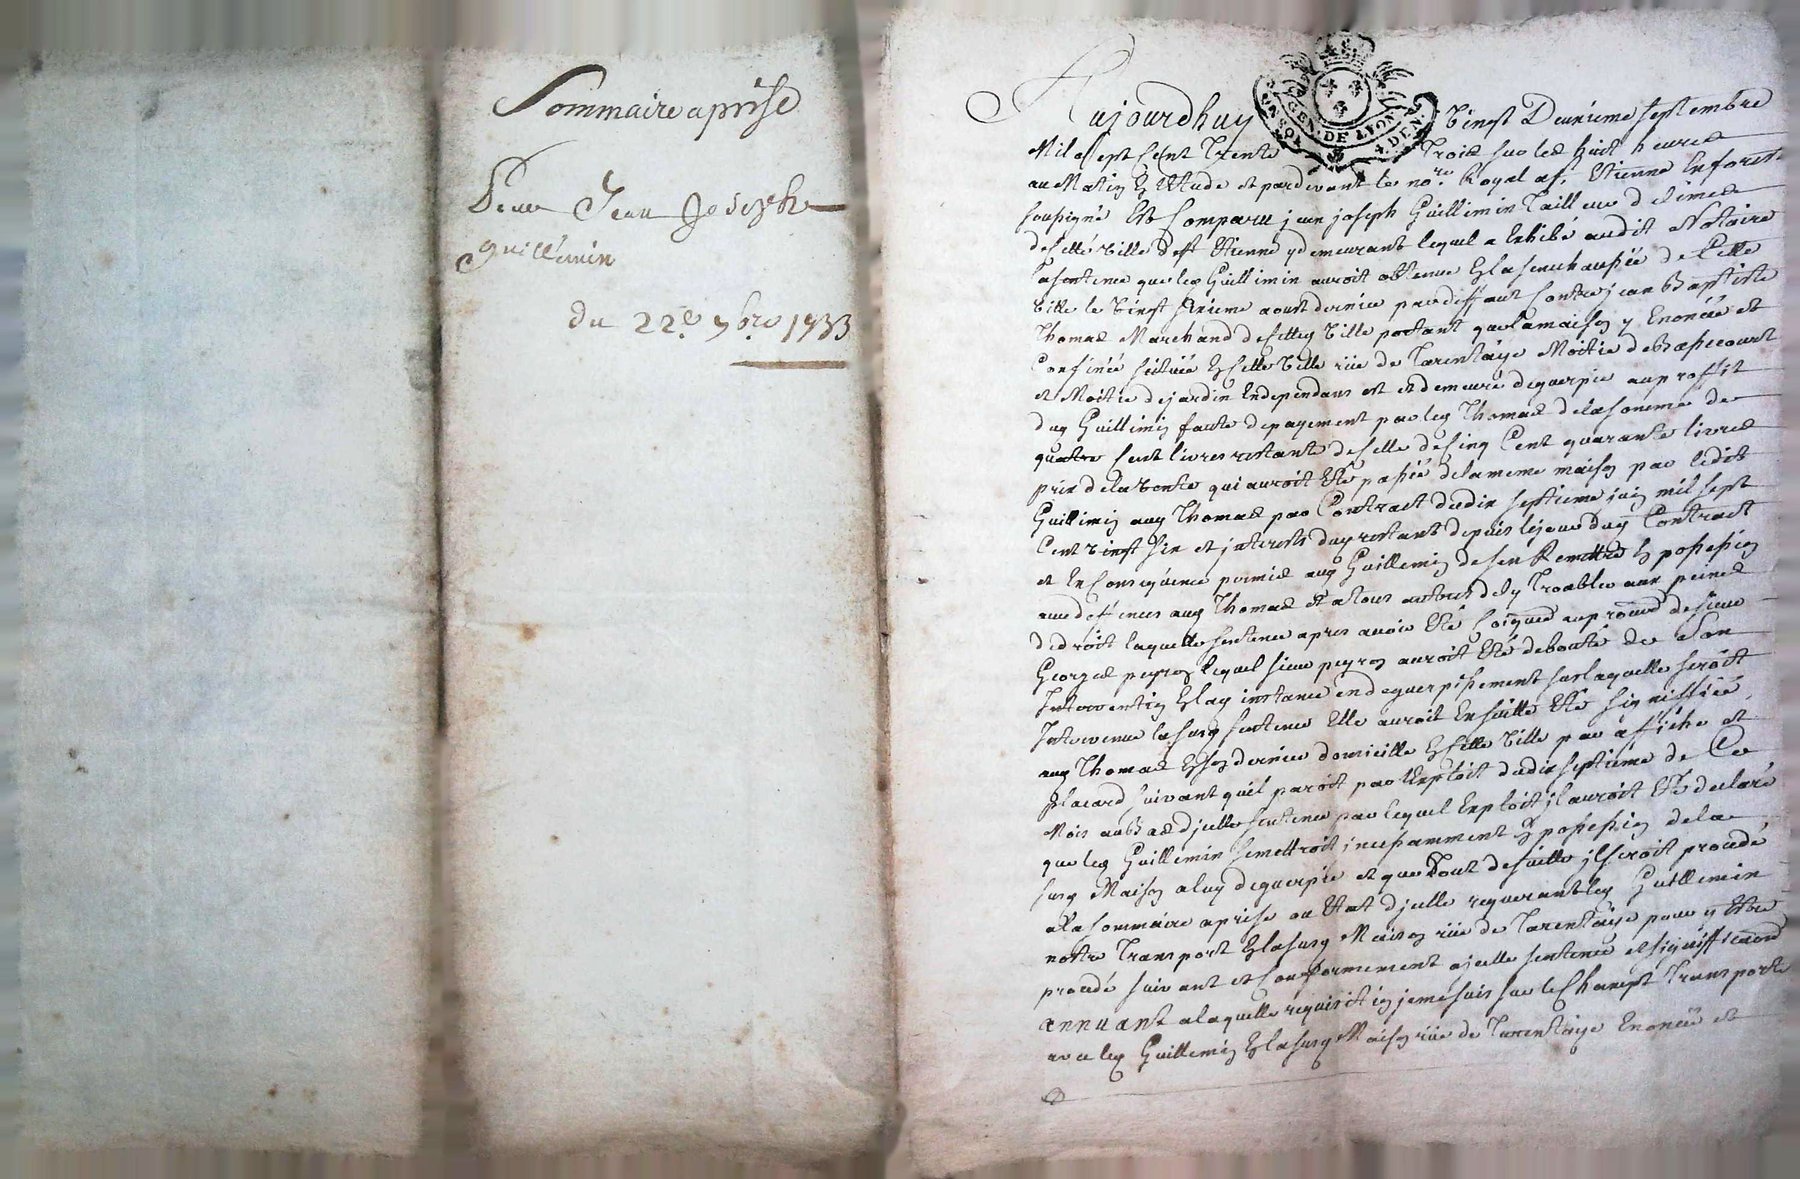 Sommaire aprise
Pour Jean Joseph
guillemin
du 22e 7bre 1733
GEN. DE LYON
Aujourdhuy Vingt Deuxieme septembre
Mil sept Cent Trente Trois sur les huit heures
au Matin En Etude et pardevant le nore Royal a st Etienne En forest
soussigné Est Comparu jean joseph Guillimin Tailleur de limes
de cette ville de st Etienne y demeurant lequel a Exhibé audit Notaire
la sentence que led Guillimin auroit obtenue En la senechaussée de Cette
Ville le Vingt sixieme aoust dernier par deffaut Contre jean Baptiste
Thomas Marchand de cette Ville portant que la maison y Enoncée et
Confinée scituée En cette Ville rüe de Tarentaize Moitié de Bassecourt
et Moitié de jardin En dependans est et demeuré deguerpie au proffit
dud Guillimin faute de payement par led Thomas de la somme de
quatre Cent livres restant de celle de Cinq Cent quarante livres
prix de la Vente qui auroit Eté passée de la meme maison par ledit
Guillimin aud Thomas par Contract du dix septieme juin mil sept
Cent Vingt six et interests du restant depuis le jour dud Contract
et En Consequence permis aud Guillemin de s'en Remettre En possession
avec deffences aud Thomas et a tous autres de ly Troubler aux peines
de droit laquelle sentence apres avoir Eté au de sieur
Georges peyron lequel sieur peyron auroit Eté debouté de son
Intervention En lad instance en deguerpissement sur laquelle seroit
Intervenue la susd sentence Elle auroit Ensuitte Eté signiffiée
aud Thomas En son dernier domicille En cette Ville par affiche et
placard suivant quil paroit par Exploit du dix septieme de Ce
Mois au Bas d'jcelle sentence par lequel Exploit il auroit Eté declaré
que led Guillemin se mettroit incessamment En possession de la
susd Maison a luy deguerpie et que Tout de suitte il seroit procedé
a la sommaire aprise ou Etat d'jcelle requerant led Guillemin
notre Transport En la susd Maison rüe de Tarentaize pour y Etre
procedé suivant et Conformement a jcelle sentence et signiffication
annuant a laquelle requisition je me suis sur le Champt Transporté
avec led Guillemin En la susd Maison rüe de Tarentaize Enoncée et